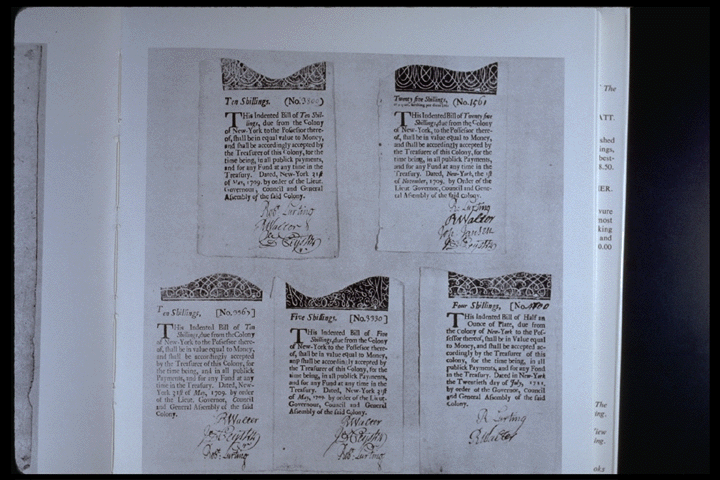 Ten Shillings. (No.3800)
THis Indented Bill of Ten Shil-
lings, due from the Colony
of New-York to the Possessor there-
of, shall be in value equal to Money,
and shall be accordingly accepted by
the Treasurer of this Colony, for the
time being, in all publick payments,
and for any Fund at any time in the
Treasury. Dated, New-York 31st
of May, 1709. by order of the Lieut.
Governour, Council and General
Assembly of the said Colony.
Robt Lurting
RWalter
Twenty five Shillings,
(No.1561
THis Indented Bill of Twenty five
Shillings, due from the Colony
of New-York, to the Possessor thereof,
shall be in value equal to Money,
and shall be accordingly accepted by
the Treasurer of this Colony, for the
time being, in all publick payments,
and for any Fund at any time in the
Treasury. Dated, New-York, the 1st
of November, 1709. by Order of the
Lieut. Governor, Council and Gene-
ral Assembly of the said Colony.
R Lurting
RWalter
Ten Shillings, [No.3363]
THis Indented Bill of Ten
Shillings, due from the Colony
of New-York to the Possessor there-
of, shall be in value equal to Money,
and shall be accordingly accepted
by the Treasurer of this Colony, for
the time being, and in all publick
Payments, and for any Fund at any
time in the Treasury. Dated, New-
York 31st of May, 1709. by order
of the Lieut. Governor, Council
and General Assembly of the said
Colony.
RWalter
Robt Lurting
Five Shillings. [No.3330]
THis Indented Bill of Five
Shillings, due from the Colony
of New-York to the Possessor there-
of, shall be in value equal to Money,
and shall be accordingly accepted by
the Treasurer of this Colony, for the
time being, in all publick Payments,
and for any Fund at any time in the
Treasury. Dated, New-York 31st
of May, 1709. by order of the Lieut.
Governour, Council and General
Assembly of the said Colony.
RWalter
Robt Lurting
Four Shillings, [No.
THis Indented Bill of Half an
Ounce of Plate, due from
the Colony of New-York to the Pos-
sessor thereof, shall be in Value equal
to Money, and shall be accepted ac-
cordingly by the Treasurer of this
colony, for the time being, in all
publick Payments, and for any Fund
at any time in the
Treasury. Dated in New-York
the Twentieth day of July,
by order of the Governor, Council
and General Assembly of the said
Colony.
R Lurting
RWalter
The
ATT.
shed
ings,
best-
8.50.
ER.
most
king
and
0.00
The
ing.
ing.